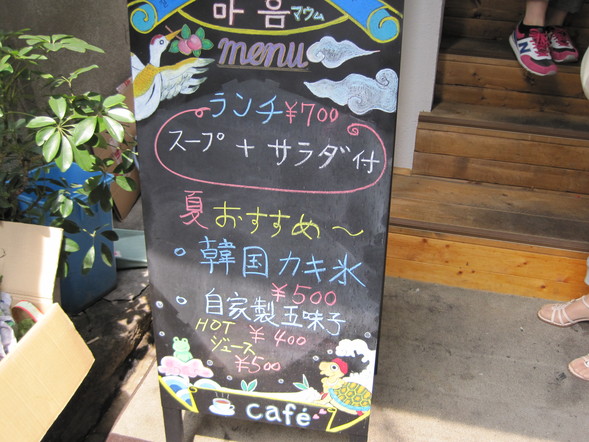 마음 マウム
menu
ランチ ¥700
スープ + サラダ付
夏 おすすめ～
。韓国カキ氷
¥500
。自家製五味子
HOT ¥400
ジュース
¥500
café
N